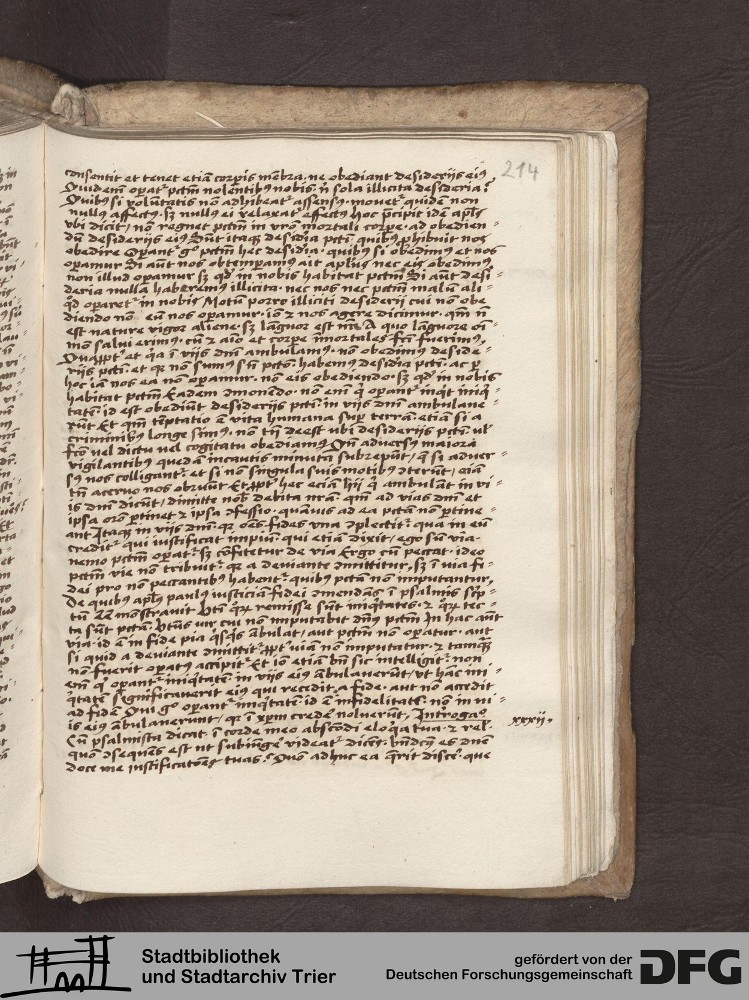 214
consentit et tenet etiā corpis mēbra. ne obediant desiderijs eiꝰ
Quid em̄ opat᷑ pctm̄ nolentibꝰ nobis. n̄ sola illicita desideria?
Quibꝰ si volūtatis non adhibeat᷑ assensꝰ. movet᷑ quidem non
nullꝰ affectꝰ. sꝫ nullꝰ ei relaxat᷑ effectꝰ hoc p̄cipit idē apl̄s
vbi dicit/ nō regnet pctm̄ in vr̄o mortali corpe. ad obedien-
dū desiderijs eiꝰ Sūt itaqꝫ desidia pcti. quibꝰ ꝓhibuit nos
obedire Opant᷑ gͦ pctm̄ hec desidia. quibꝰ si obedimꝰ et nos
opamur Si aūt nos obtemperamꝰ ait aplūs nec eis obedimꝰ
non illud opamur sꝫ qd in nobis habitat pctm̄ Si aūt desi-
deria nulla haberemꝰ illicita. nec nos nec pctm̄ malū ali-
qd oparet᷑ in nobis Motū porro illiciti desiderij cui non obe
diendo nō eū nos opamur. iō ⁊ nos agere dicimur. qm̄ n̄
est nature vigor aliene. sꝫ languor est nr̄e A quo languore oī
mō salui erimꝰ. cū ⁊ aīo et corpe immortales fcī fuerimꝰ,
Quapp̄t et qa ī vijs dnī ambulamꝰ. nō obedimꝰ deside-
rijs pcti. et qꝫ nō sumꝰ sn̄ pctō habemꝰ desidia pcti. ac p
hoc iā nos ea nō opamur. nō eis obediendo. sꝫ qd in nobis
habitat pctm̄ Eadem ꝯmonēdo. nō em̄ q opant᷑ inqt iniq-
tatē. id est obediūt desiderijs pcti. in vijs dnī ambulaue-
rūt Et qm̄ tēptatio ē vita humana suꝑ terrā. etiā si a
criminibꝰ longe simꝰ. nō tn̄ deest vbi desiderijs pcti vl
fcō vel dictu vel cogitatu obediamꝰ Cū aduersꝰ maiora
vigilantibꝰ quedā incautis minuta subrepūt/ q si aduer-
sꝰ nos colligant᷑. et si nō singula suis motibꝰ ꝯterūt, etiā
tn̄ aceruo nos obruūt Et ꝓpt hec eciā hij q ambulāt in vi-
is dnī dicūt/ dimitte nob̄ debita nr̄a. qm̄ ad vias dnī et
ipsa orō ptinet ⁊ ipsa ꝯfessio. quāuis ad ea pctā nō ptine-
ant Itaqꝫ in vijs dnī. qꝫ oēs fides vna ꝯplectit᷑. qua in eū
credit᷑ qui iustificat impiū. qui etiā dixit. ego sū via.
nemo pctm̄ opat᷑. sꝫ cōfitetur de via Ergo cū peccat. ideo
pctm̄ vie nō tribuit᷑. qꝫ a deviante ꝯmittitur, sꝫ ī via fi-
dei pro non peccantibꝰ habent᷑. quibꝰ pctā nō imputantur,
De quibꝰ apl̄s paulꝰ iusticiā fidei ꝯmendās ī psalmis scp-
tū ēē monstravit Bt̄i qꝝ remisse sūt iniqtates. ⁊ qꝝ tec-
ta sūt pctā. Bt̄us vir cui nō imputabit dn̄s pctm̄ In hac aūt
via. id ē in fide pia qsqs ābulat/ aut pctm̄ nō opatur. aut
si quid a deviante ꝯmittit᷑. ꝓpt viā nō imputatur. ⁊ tamqꝫ
nō fuerit opatꝰ accipit᷑ Et iō etiā bn̄ sic intelligit᷑. non
em̄ q opant᷑ iniqtatē in vijs eiꝰ ābulauerūt/ vt hac ini-
qtatē significauerit eiꝰ qui recedit a fide. aut nō accedit
ad fidem Qui gͦ opant᷑ iniqtatē. id ē infidelitatē. nō in vi-
is eiꝰ ābulauerunt/ qꝫ ī xpm̄ crede nolverūt, Introga°
xxxij.
Cū psalmista dicat ī corde meo abscōdi eloqa tua. ⁊ rel̄.
quō ꝯsequēs est vt subiūge videat᷑ dicēs. bn̄dcꝰ es dn̄e
doce me iustificatōes tuas? Quō adhuc ea qrit disce. que
Stadtbibliothek
und Stadtarchiv Trier
gefördert von der
Deutschen Forschungsgemeinschaft
DFG